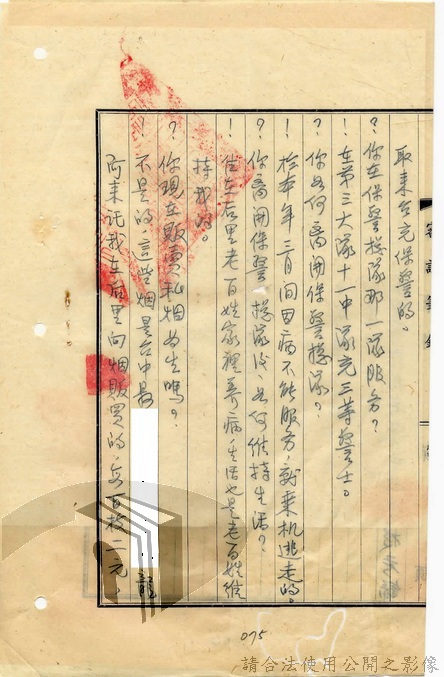 取來台充保警的。
？你在保警總隊那一隊服务？
！在第三大隊十一中隊充三等警士。
？你如何离開保警總隊？
！於本年三月间因病不能服务，就乘机逃走的。
？你离開保警總隊後，如何維持生活？
！住在后里老百姓家裡养病，生活也是老百姓維
持我的。
？你現在販賣私烟为生嗎？
！不是的，這些烟是台中
龍
阿来託我在后里向烟販買的，每百枝二元，
075
請合法使用公開之影像